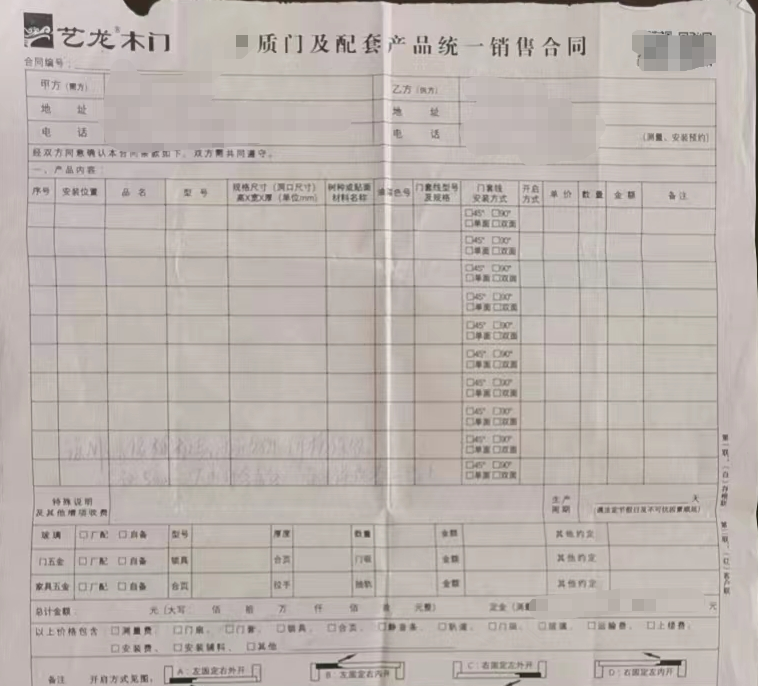 艺龙®木门
质门及配套产品统一销售合同
合同编号：
甲方（需方） 乙方（供方）
地 址 地 址
电 话 电 话 （测量、安装预约）
经双方同意确认本合同条款如下，双方需共同遵守。
一、产品内容：
序号 安装位置 品 名 型 号 规格尺寸（洞口尺寸）高X宽X厚（单位mm） 树种或贴面材料名称 油漆色号 门套线型号及规格 门套线安装方式 开启方式 单价 数量 金额 备注
□45° □90°
□单面 □双面
□45° □90°
□单面 □双面
□45° □90°
□单面 □双面
□45° □90°
□单面 □双面
□45° □90°
□单面 □双面
□45° □90°
□单面 □双面
□45° □90°
□单面 □双面
□45° □90°
□单面 □双面
□45° □90°
□单面 □双面
□45° □90°
□单面 □双面
特殊说明及其他增项收费 生产周期 天
（遇法定节假日及不可抗因素顺延）
玻璃 □厂配 □自备 型号 厚度 数量 金额 其他约定
门五金 □厂配 □自备 锁具 合页 门吸 金额 其他约定
家具五金 □厂配 □自备 合页 拉手 抽轨 金额 其他约定
总计金额 元（大写 佰 拾 万 仟 佰 元整） 定金（测量 元
以上价格包含 □测量费、 □门扇、 □门套、 □锁具、 □合页、 □静音条、 □轨道、 □门吸、 □玻璃、 □运输费、 □上楼费、
□安装费、 □安装辅料、 □其他
备注 开启方式见图： A：左固定右外开 B：左固定右内开 C：右固定左外开 D：右固定左内开